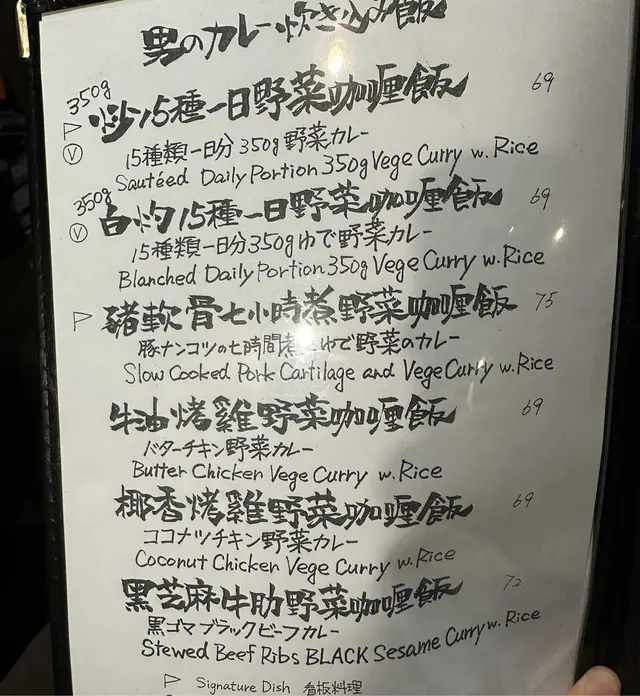 男のカレー炊き込み飯
350g
炒15種一日野菜咖喱飯 69
Ⓥ 15種類一日分350g野菜カレー
Sautéed Daily Portion 350g Vege Curry w. Rice
350g
Ⓥ 白灼15種一日野菜咖喱飯 69
15種類一日分350gゆで野菜カレー
Blanched Daily Portion 350g Vege Curry w. Rice
豬軟骨七小時煮野菜咖喱飯 75
豚ナンコツの七時間煮とゆで野菜のカレー
Slow Cooked Pork Cartilage and Vege Curry w. Rice
牛油烤雞野菜咖喱飯 69
バターチキン野菜カレー
Butter Chicken Vege Curry w. Rice
椰香烤雞野菜咖喱飯 69
ココナツチキン野菜カレー
Coconut Chicken Vege Curry w. Rice
黒芝麻牛肋野菜咖喱飯 72
黒ゴマブラックビーフカレー
Stewed Beef Ribs BLACK Sesame Curry w. Rice
Signature Dish 看板料理